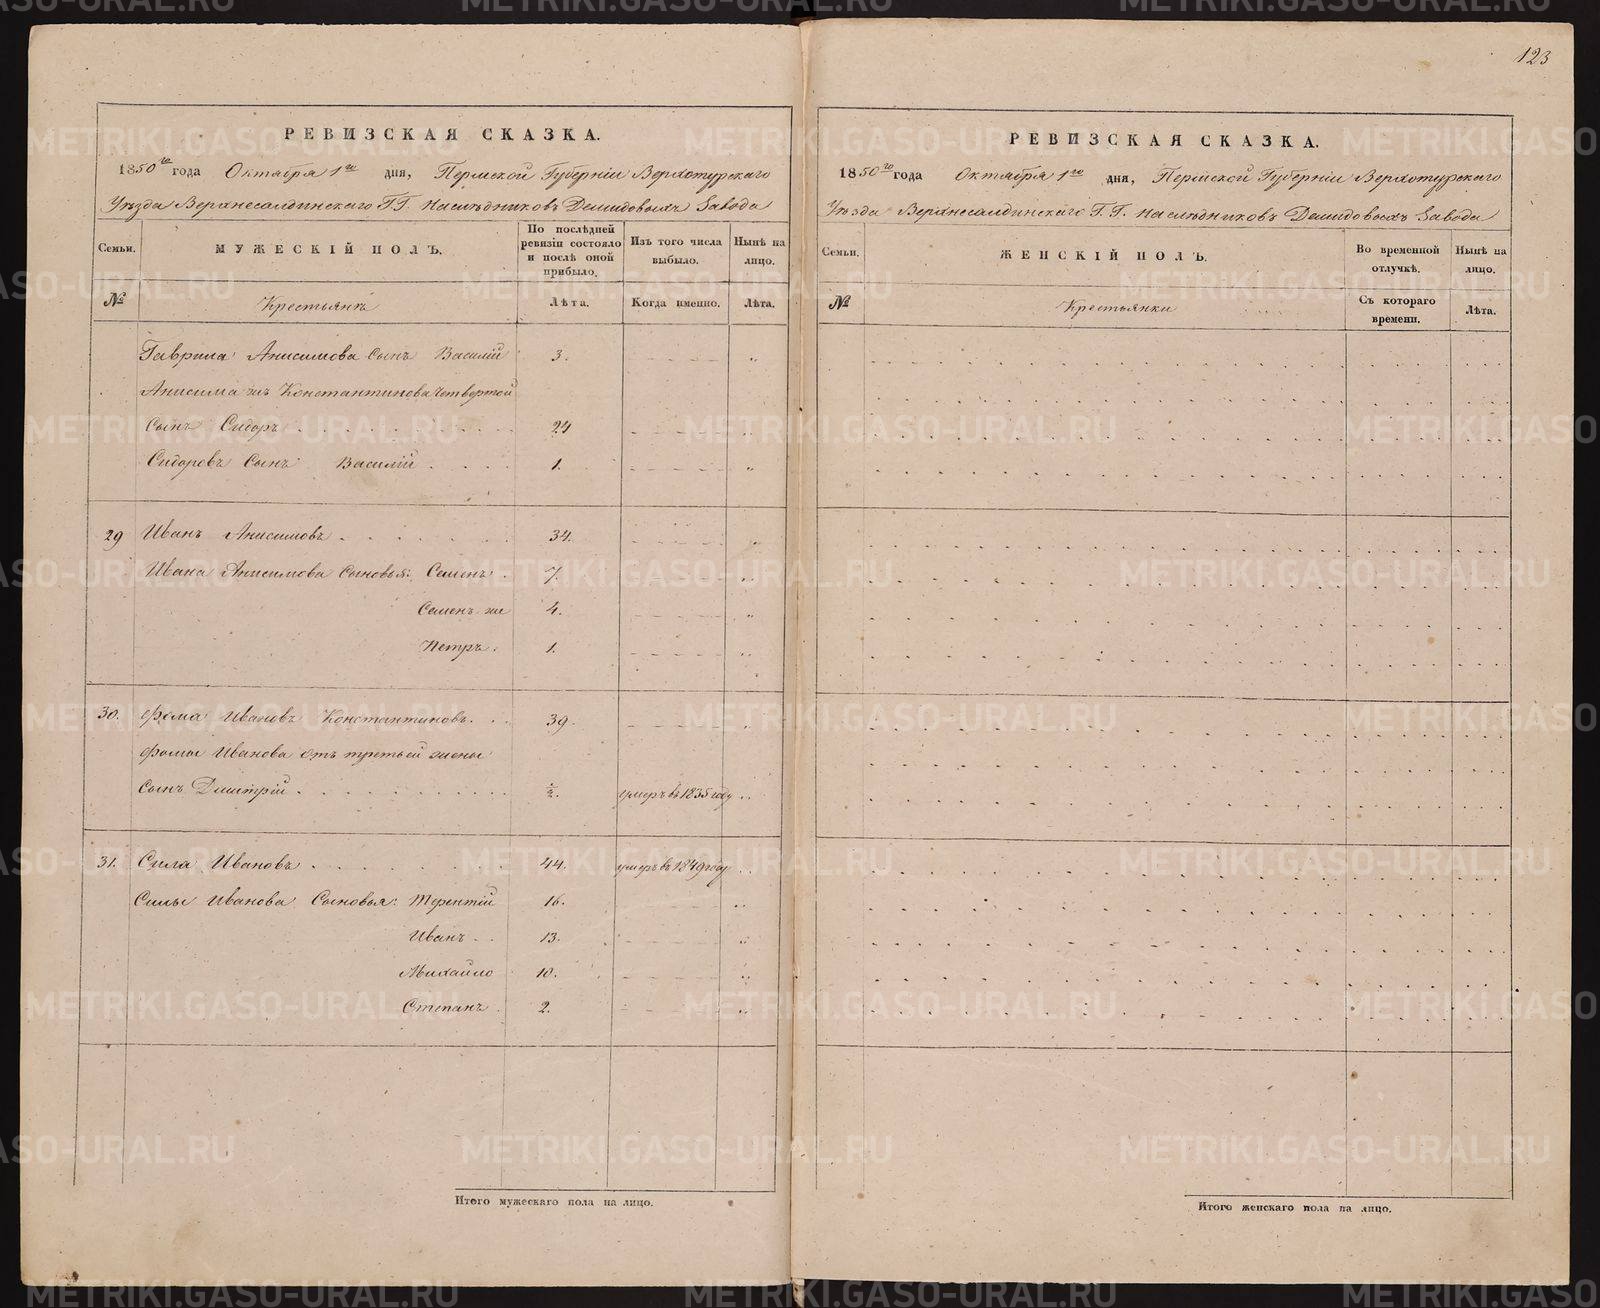 123
РЕВИЗСКАЯ СКАЗКА.
1850го года Октября 1го дня, Пермской Губерніи Верхотурскаго
Уѣзда Верхнесалдинскаго Г.Г. Наслѣдниковъ Демидовыхъ Завода
Семьи.
МУЖЕСКІЙ ПОЛЪ.
По послѣдней ревизіи состояло и послѣ оной прибыло.
Изъ того числа выбыло.
Нынѣ на лицо.
№
Крестьянъ
Лѣта.
Когда именно.
Лѣта.
Гаврила Анисимова Сынъ Василій 3.
Анисима жъ Константинова четвертой
Сынъ Сидоръ 24
Сидоровъ Сынъ Василій 1.
29 Иванъ Анисимовъ 34.
Ивана Анисимова Сыновья: Семенъ 7.
Семенъ же 4.
Петръ. 1.
30. Фома Ивановъ Константиновъ. 39.
Фомы Иванова отъ третьей жены
Сынъ Дмитрій ½. умеръ въ 1835 году
31. Сила Ивановъ 44. умеръ въ 1849 году
Силы Иванова Сыновья: Терентій 16.
Иванъ 13.
Михайло 10.
Степанъ 2.
Итого мужескаго пола на лицо.
РЕВИЗСКАЯ СКАЗКА.
1850го года Октября 1го дня, Пермской Губерніи Верхотурскаго
Уѣзда Верхнесалдинскаго Г.Г. Наслѣдниковъ Демидовыхъ Завода
Семьи.
ЖЕНСКІЙ ПОЛЪ.
Во временной отлучкѣ.
Нынѣ на лицо.
№
Крестьянки
Съ котораго времени.
Лѣта.
Итого женскаго пола на лицо.
METRIKI.GASO-URAL.RU